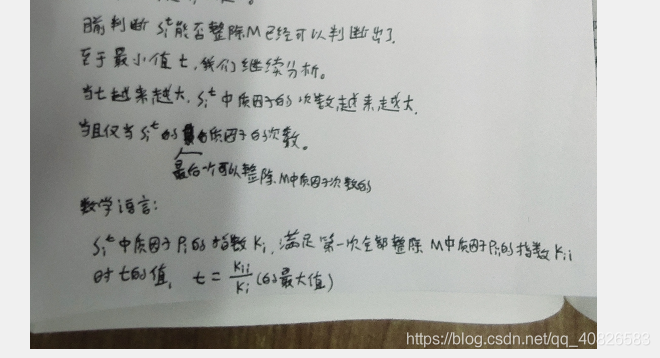 判断 Sᵢᵗ能否整除M已经可以判断出了,
至于最小值 t, 我们继续分析。
当t越来越大, Sᵢᵗ中质因子的次数越来越大,
当且仅当 Sᵢᵗ的质因子的次数。
最后一个可以整除M中质因子次数的
数学语言:
Sᵢᵗ中质因子Pᵢ的指数Kᵢ, 满足第一次全部整除M中质因子Pᵢ的指数Kᵢᵢ
时t的值, t = Kᵢᵢ/Kᵢ (的最大值)
https://blog.csdn.net/qq_40826583